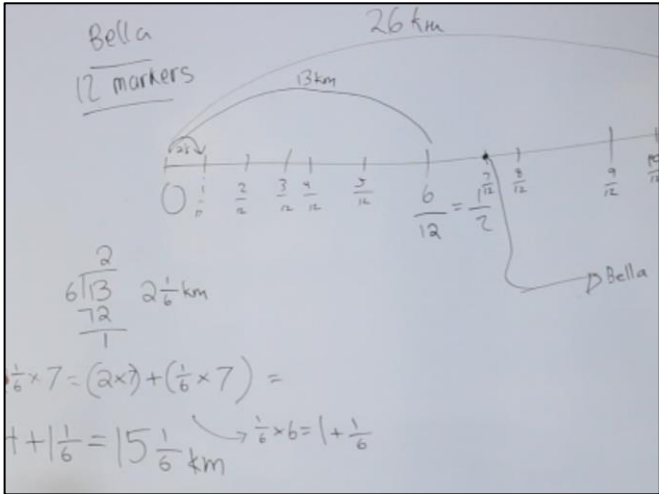 Bella
12 markers
26 km
13km
2 1/6
0 1/12 2/12 3/12 4/12 5/12 6/12 = 1/2 7/12 8/12 9/12 10/12
Bella
2
6)13 2 1/6 km
12
1
1/6 × 7 = (2×7) + (1/6 × 7) =
→ 1/6 × 6 = 1 + 1/6
+ 1 1/6 = 15 1/6 km